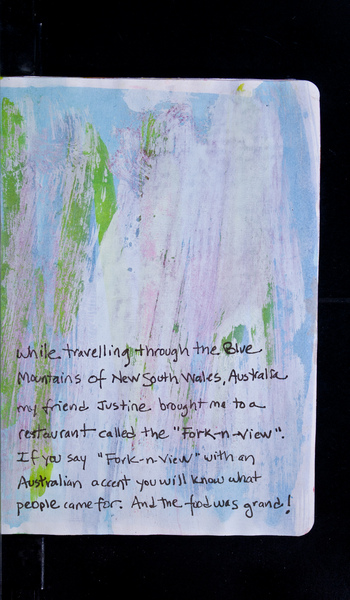 while travelling through the Blue
Mountains of New South Wales, Australia
my friend Justine brought me to a
restaurant called the "Fork-n-View".
If you say "Fork-n-View" with an
Australian accent you will know what
people came for. And the food was grand!